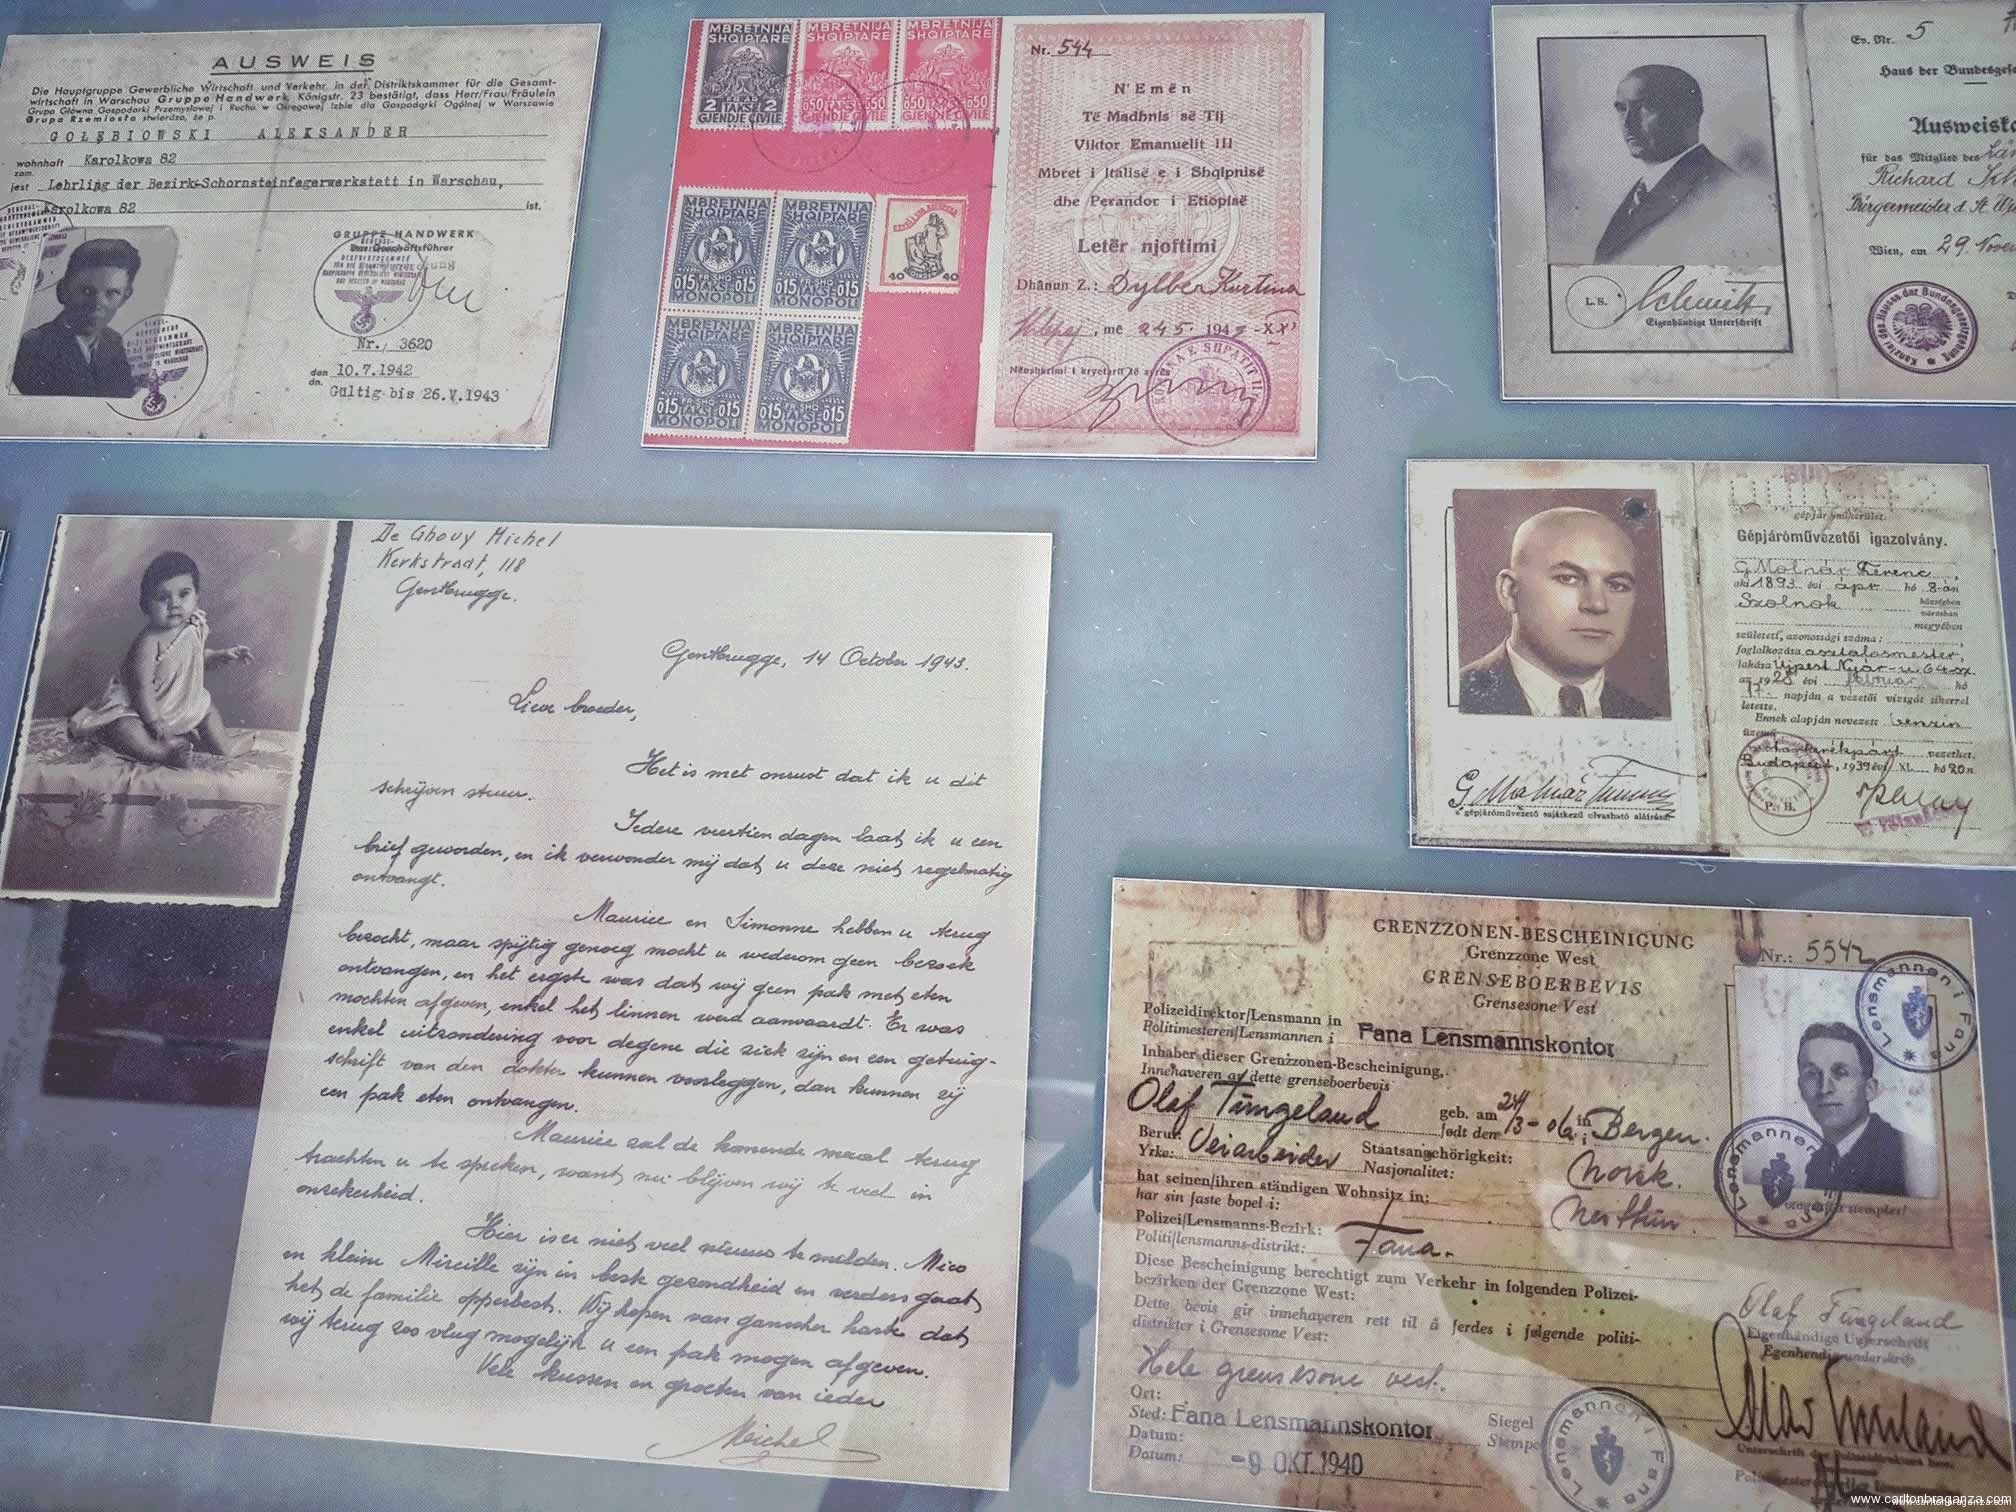 AUSWEIS
Die Hauptgruppe Gewerbliche Wirtschaft und Verkehr in der Distriktskammer für die Gesamt-
wirtschaft in Warschau Gruppe Handwerk, Königstr. 23 bestätigt, dass Herr/Frau/Fräulein
Grupa Główna Gospodarki Przemysłowej i Ruchu w Okręgowej Izbie dla Gospodarki Ogólnej w Warszawie
Grupa Rzemiosła stwierdza, że p.
GOŁĘBIOWSKI ALEKSANDER
wohnhaft Karolkowa 82
zam.
jest Lehrling der Bezirk-Schornsteinfegerwerkstatt in Warschau,
Karolkowa 82 ist.
GRUPPE HANDWERK
Nr. 3620
den 10.7.1942
dn.
Gültig bis 26.V.1943
MBRETNIJA SHQIPTARE
2 TAKSË 2
GJENDJE CIVILE
MBRETNIJA SHQIPTARE
GJENDJE CIVILE
MBRETNIJA SHQIPTARE
GJENDJE CIVILE
MBRETNIJA SHQIPTARE
015 FR. SHQ. 015
TAKSË
MONOPOLI
MBRETNIJA SHQIPTARE
015 FR. SHQ. 015
TAKSË
MONOPOLI
MBRETNIJA SHQIPTARE
015 FR. SHQ. 015
TAKSË
MONOPOLI
MBRETNIJA SHQIPTARE
015 FR. SHQ. 015
TAKSË
MONOPOLI
40 40
Nr. 544
N'Emën
Të Madhnis së Tij
Viktor Emanuelit III
Mbret i Italisë e i Shqipnisë
dhe Perandor i Etiopisë
Letër njoftimi
Dhånun Z.: Dylber Kurtina
, më 24.5. 194 -XX
Nënshkrimi i kryetarit të zyrës
L. S.
Schmitz
Eigenhändige Unterschrift
Ev. Nr. 5
Haus der Bundesgese
Ausweisk
für das Mitglied des Län
Richard
Bürgermeister d. St. W
Wien, am 29. Nove
Kanzlei des Hauses der Bundesgesetzgebung
De Ghouy Michel
Kerkstraat, 118
Gentbrugge.
Gentbrugge, 14 October 1943.
Lieve broeder,
Het is met onrust dat ik u dit
schrijven stuur.
Iedere veertien dagen laat ik u een
brief geworden, en ik verwonder mij dat u deze niet regelmatig
ontvangt.
Maurice en Simonne hebben u terug
bezocht, maar spijtig genoeg mocht u wederom geen bezoek
ontvangen, en het ergste was dat wij geen pak met eten
mochten afgeven, enkel het linnen werd aanvaardt. Er was
enkel uitzondering voor degene die ziek zijn en een getuig-
schrift van den dokter kunnen voorleggen, dan kunnen zij
een pak eten ontvangen.
Maurice zal de komende maal terug
trachten u te spreken, want nu blijven wij te veel in
onzekerheid.
Hier is er niet veel nieuws te melden. Mico
en kleine Mireille zijn in beste gezondheid en verders gaat
het de familie opperbest. Wij hopen van ganscher harte dat
wij terug zoo vlug mogelijk u een pak mogen afgeven.
Vele kussen en groeten van ieder
Michel
G. Molnár Ferenc
a gépjáróművezető sajátkezű olvasható aláírása
gépjárőműkerület.
Gépjáróművezetői igazolvány.
G. Molnár Ferenc,
aki 1893. évi ápr. hó 8-án
Szolnok községben
városban
megyében
született, azonossági száma:
foglalkozása asztalosmester,
lakása Újpest Nyár-u. 64 sz
az 1928 évi február hó
17. napján a vezetői vizsgát sikerrel
letette.
Ennek alapján nevezett benzin
üzemű
motorkerékpárt vezethet.
Budapest, 1939 évi XI. hó 20 n.
P. H.
GRENZZONEN-BESCHEINIGUNG
Grenzzone West
GRENSEBOERBEVIS
Grensesone Vest
Nr.: 5542
Polizeidirektor/Lensmann in
Politimesteren/Lensmannen i Fana Lensmannskontor
Inhaber dieser Grenzzonen-Bescheinigung,
Innehaveren av dette grenseboerbevis
Olaf Tungeland geb. am 24/3-06 in Bergen.
født den i
Beruf: Veiarbeider Staatsangehörigkeit:
Yrke: Nasjonalitet: Norsk.
hat seinen/ihren ständigen Wohnsitz in:
har sin faste bopel i: Nesttun.
Polizei/Lensmanns-Bezirk:
Politi/lensmanns-distrikt: Fana.
Diese Bescheinigung berechtigt zum Verkehr in folgenden Polizei-
bezirken der Grenzzone West:
Dette bevis gir innehaveren rett til å ferdes i følgende politi-
distrikter i Grensesone Vest:
Hele grensesone vest.
Ort:
Sted: Fana Lensmannskontor
Datum:
Datum: -9 OKT. 1940
Siegel
Stempel
Lensmannen i Fana
Lensmannen i Fana
Lensmannen i Fana
Olaf Tungeland
Eigenhändige Unterschrift
Egenhendig underskrift
www.carltonbraganza.com